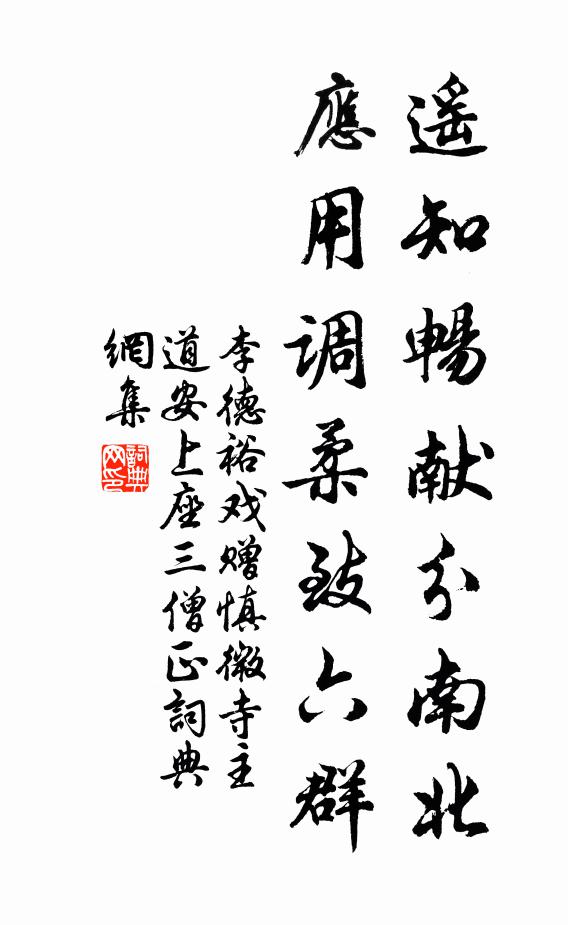 遥知暢献分南北
應用調柔致六群
李德裕戏赠慎微寺主
道安上座三僧正詞典
網集
詞典
网印